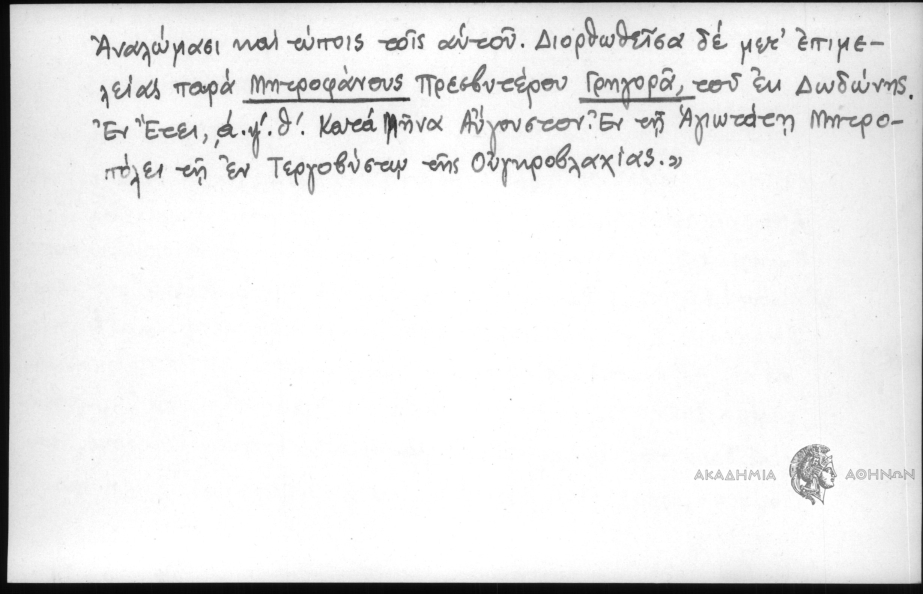 Ἀναλώμασι καὶ τύποις τοῖς αὐτοῦ. Διορθωθεῖσα δέ μετ' ἐπιμε-
λείας παρά Μητροφάνους Πρεσβυτέρου Γρηγορᾶ, τοῦ ἐκ Δωδώνης.
Ἐν Ἔτει, ͵ά.ψ'.θ'. Κατά Μῆνα Αὔγουστον. Ἐν τῇ Ἁγιωτάτῃ Μητρο-
πόλει τῇ ἐν Τεργοβύστῳ τῆς Οὐγκροβλαχίας.»
ΑΚΑΔΗΜΙΑ ΑΘΗΝΩΝ